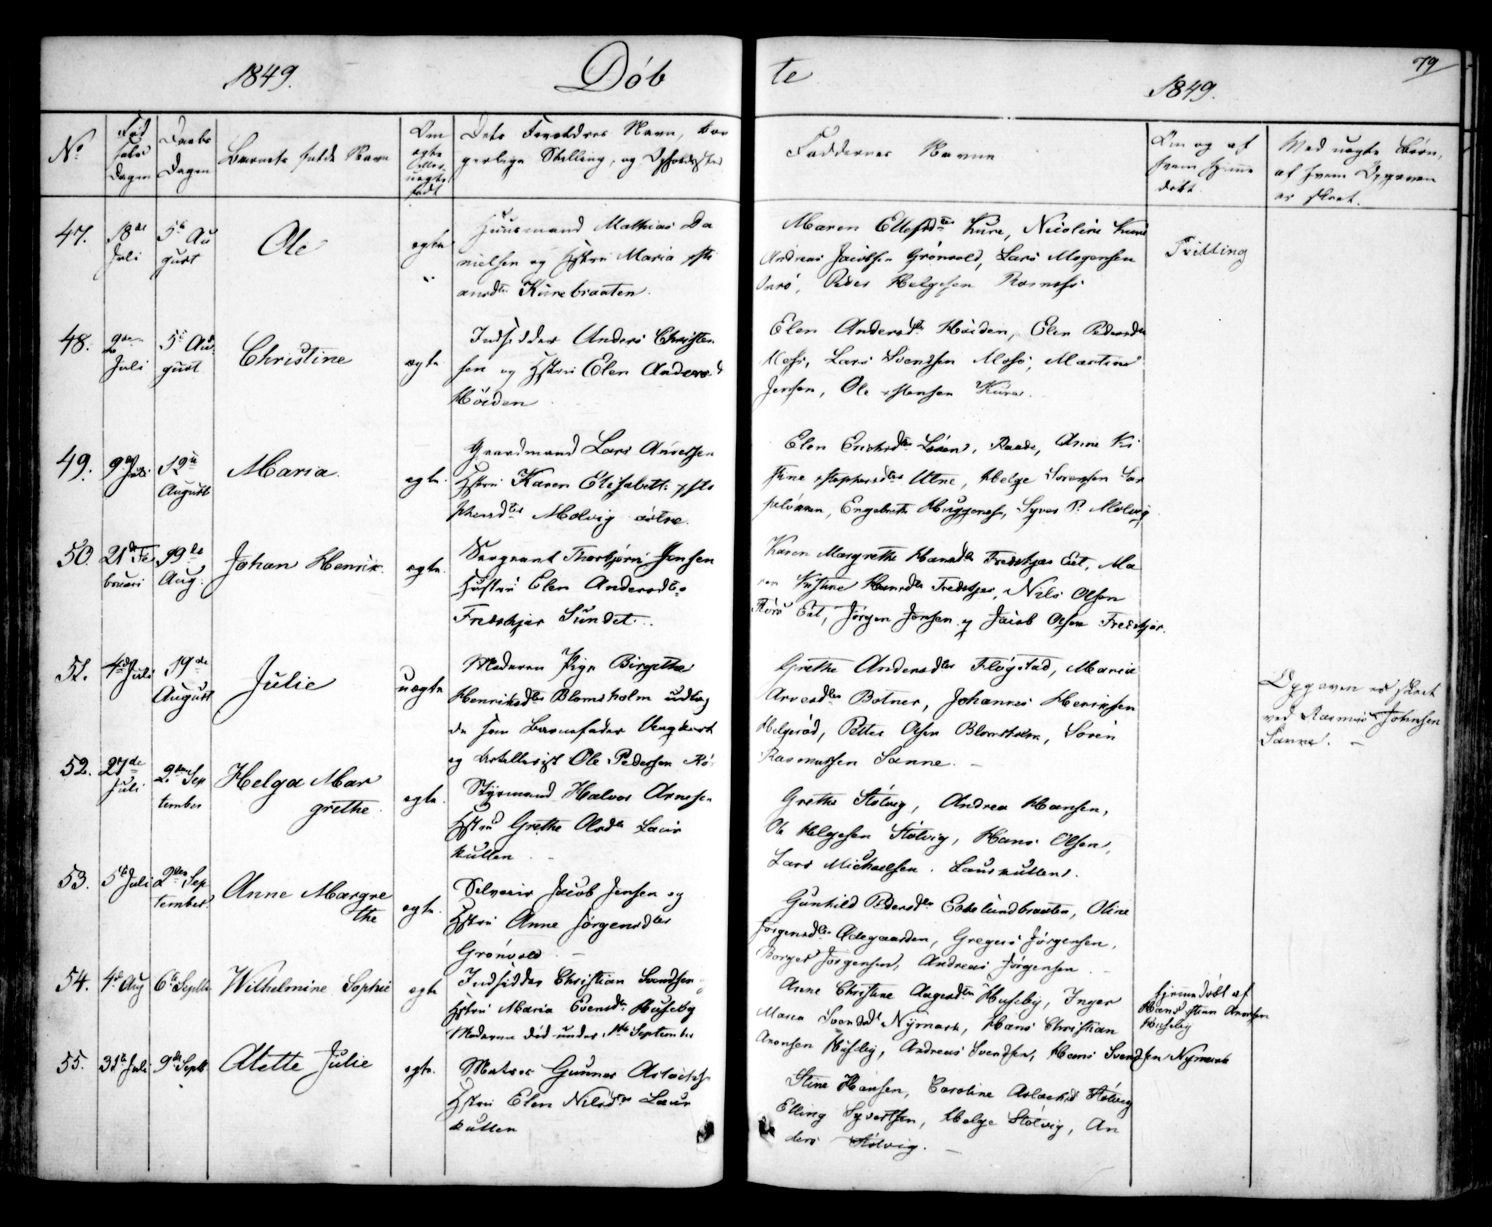 1849.
Döb
te
1849.
79
No
Fød
sels
Dagen
Daabs
Dagen
Barnets fulde Navn
Om
ægte
eller
uægte
født
Dets Forældres Navn, Bor
gerlige Stilling, og Opholdssted
Faddernes Navne
Om og af
hvem hjemme
døbt.
Med uægte Børn,
af hvem Opgaven
er skeet.
47.
18de
Juli
5te Au
gust
Ole
ægte
Huusmand Mathias Da
nielsen og Hstru Maria
Kurebraaten.
Maren Ellefsdtr Kure, Nicoline Kure
Andreas Jacobsen Grönvold, Lars Mogensen
Peder Helgesen
48.
9de
Juli
5te Au
gust
Christine
ægte
Inds­idder Anders Christen
sen og Hstru Elen Andersd
Höiden
Elen Andersdtr Höiden, Elen Pedersdtr
Moss, Lars Svendsen Moss, Martin
Jensen, Ole Hansen Kure.
49.
9de Juli
12te
August
Maria.
ægte.
Gaardmand Lars Andersen
Hstru Karen Elisabeth Ste
phensdtr Molvig östre.
Elen Lövens, Anne Ki
stine Stephensdtr Utne, Helge Sorensen
Engebreth Huggenes, Syver P. Molvig
50.
21de Fe
bruari
19de
Aug.
Johan Henrik.
ægte.
Sergeant Thorbjörn Jensen
Hustru Elen Andersdtr
Fredskjær Sundet.
Karen Margrethe Hansdtr Fredskjær Eiet, Ma
ren Kistine Hansdtr Fredskjær, Nils Olsen
Eiet, Jörgen Jensen og Jacob Olsen Fredskjær.
51.
4de Juli
19de
August
Julie
uægte
Moderen Pige Birgithe
Henriksdtr Blomsholm udlag
de som Barnefader Ungkarl
og Artillerist Ole Pedersen Rö.
Grethe Andersdtr Flögstad, Maria
Arvesdtr Botner, Johannes Henriksen
Helgeröd, Petter Olsen Blomsholm, Sören
Rasmussen Sanne.
Opgaven er skeet
ved Rasmus Johnsen
Sanne.
52.
27de
Juli
2den Sep
tember
Helga Mar
grethe
ægte.
Styrmand Halvor Arnesen
Hstru Grethe Olsdtr Laur
kullen
Grethe Stötvig, Andrea Hansen,
Ole Helgesen Stötvig, Hans Olsen,
Lars Michaelsen. Laurkullen.
53.
5te Juli
2den Sep
tember
Anne Margre
the
ægte.
Selveier Jacob Jensen og
Hstru Anne Jörgensdtr
Grönvold
Gunhild Pedersdtr Eskelundbraaten, Oline
Jörgensdtr Ödegaarden, Gregers Jörgensen,
Borger Jörgensen, Andreas Jörgensen
54.
4de Aug
6te Septb
Wilhelmine Sophie
ægte
Indsidder Christian Svendsen
Hstru Maria Evensdtr Huseby
Moderen död under 1ste September
Anne Christine Aagesdtr Huseby, Inger
Maria Svendsdt Nÿmark, Hans Christian
Aronsen Huseby, Andreas Svendsen, Hans Svendsen Nymark
hjemmedöbt af
Hans Stian Aronsen
Huseby
55.
31te Juli
9de Septb
Alette Julie
ægte.
Matros Gunner Aslaksen
Hstru Elen Nilsdtr Laur
kullen
Stine Hansen, Caroline Aslaksd Stötvig
Elling Syvertsen, Helge Stötvig, An
ders Stötvig.